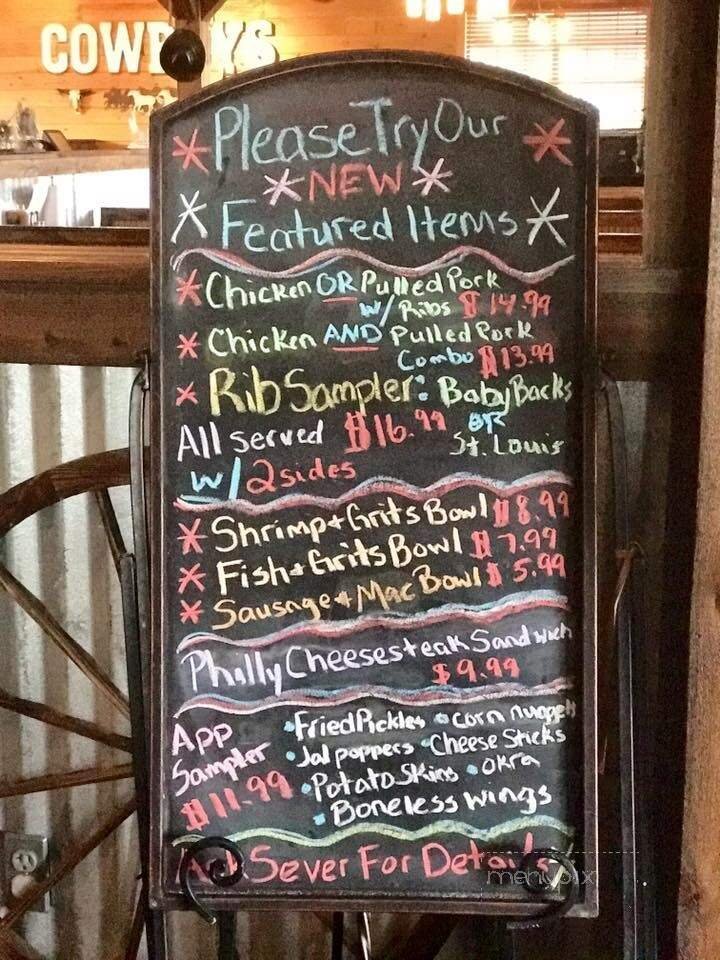 COWB YS
Please Try Our
NEW
Featured Items
Chicken OR Pulled Pork
w/ Ribs $14.99
Chicken AND Pulled Pork
Combo $13.99
Rib Sampler: Baby Backs
All served $16.99 OR
St. Louis
w/ 2 sides
Shrimp + Grits Bowl $8.99
Fish + Grits Bowl $7.99
Sausage + Mac Bowl $5.99
Philly Cheesesteak Sandwich
$9.99
App
Sampler
$11.99
• Fried Pickles • corn nuggets
• Jal poppers • Cheese Sticks
• Potato Skins • Okra
• Boneless wings
Ask Sever For Details
menupix